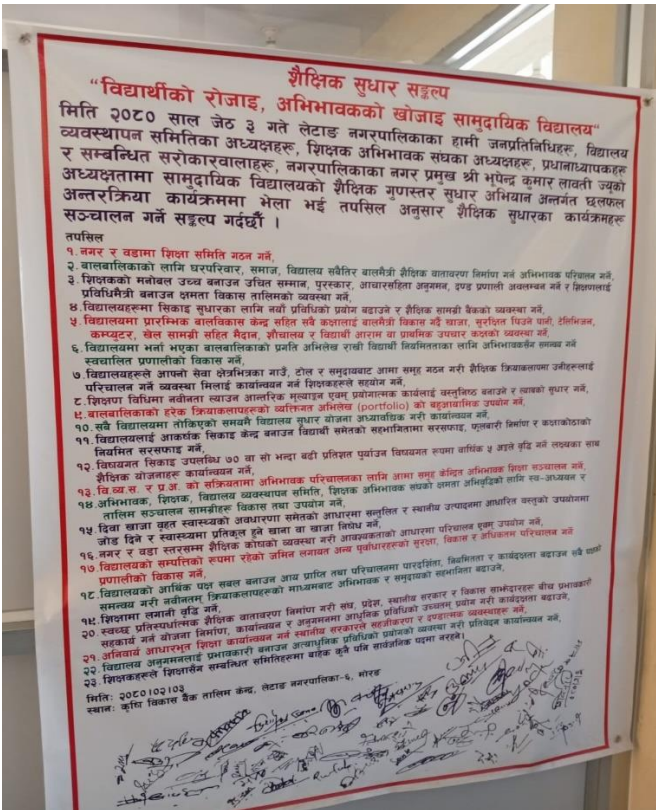 शैक्षिक सुधार सङ्कल्प
"विद्यार्थीको रोजाइ, अभिभावकको खोजाइ सामुदायिक विद्यालय"
मिति २०८० साल जेठ ३ गते लेटाङ नगरपालिकाका हामी जनप्रतिनिधिहरू, विद्यालय
व्यवस्थापन समितिका अध्यक्षहरू, शिक्षक अभिभावक संघका अध्यक्षहरू, प्रधानाध्यापकहरू
र सम्बन्धित सरोकारवालाहरू, नगरपालिकाका नगर प्रमुख श्री भूपेन्द्र कुमार लावती ज्यूको
अध्यक्षतामा सामुदायिक विद्यालयको शैक्षिक गुणस्तर सुधार अभियान अन्तर्गत छलफल
अन्तरक्रिया कार्यक्रममा भेला भई तपसिल अनुसार शैक्षिक सुधारका कार्यक्रमहरू
सञ्चालन गर्ने सङ्कल्प गर्दछौं ।
तपसिल
१. नगर र वडामा शिक्षा समिति गठन गर्ने,
२. बालबालिकाको लागि घरपरिवार, समाज, विद्यालय सबैतिर बालमैत्री शैक्षिक वातावरण निर्माण गर्न अभिभावक परिचालन गर्ने,
३. शिक्षकको मनोबल उच्च बनाउन उचित सम्मान, पुरस्कार, आचारसंहिता अनुगमन, दण्ड प्रणाली अवलम्बन गर्ने र शिक्षणलाई
प्रविधिमैत्री बनाउन क्षमता विकास तालिमको व्यवस्था गर्ने,
४. विद्यालयहरूमा सिकाइ सुधारका लागि नयाँ प्रविधिको प्रयोग बढाउने र शैक्षिक सामग्री बैंकको व्यवस्था गर्ने,
५. विद्यालयमा प्रारम्भिक बालविकास केन्द्र सहित सबै कक्षालाई बालमैत्री विकास गर्दै खाजा, सुरक्षित पिउने पानी, टेलिभिजन,
कम्प्युटर, खेल सामग्री सहित मैदान, शौचालय र विद्यार्थी आराम वा प्राथमिक उपचार कक्षको व्यवस्था गर्ने,
६. विद्यालयमा भर्ना भएका बालबालिकाको प्रगति अभिलेख राखी विद्यार्थी नियमितताका लागि अभिभावकसँग समन्वय गर्ने
स्वचालित प्रणालीको विकास गर्ने,
७. विद्यालयहरूले आफ्नो सेवा क्षेत्रभित्रका गाउँ, टोल र समुदायबाट आमा समूह गठन गरी शैक्षिक क्रियाकलापमा उनीहरूलाई
परिचालन गर्ने व्यवस्था मिलाई कार्यान्वयन गर्न शिक्षकहरूले सहयोग गर्ने,
८. शिक्षण विधिमा नवीनता ल्याउन आन्तरिक मूल्याङ्कन एवम् प्रयोगात्मक कार्यलाई वस्तुनिष्ठ बनाउने र त्यसको सुधार गर्ने,
९. बालबालिकाको हरेक क्रियाकलापहरूको व्यक्तिगत अभिलेख (portfolio) को बहुआयामिक उपयोग गर्ने,
१०. सबै विद्यालयमा तोकिएको समयमै विद्यालय सुधार योजना अध्यावधिक गरी कार्यान्वयन गर्ने,
११. विद्यालयलाई आकर्षक सिकाइ केन्द्र बनाउन विद्यार्थी समेतको सहभागितामा सरसफाइ, फूलबारी निर्माण र कक्षाकोठाको
नियमित सरसफाइ गर्ने,
१२. विषयगत सिकाइ उपलब्धि ७० वा सो भन्दा बढी प्रतिशत पुर्याउन विषयगत रूपमा वार्षिक ५ अङ्कले वृद्धि गर्ने लक्ष्यका साथ
शैक्षिक योजनाहरू कार्यान्वयन गर्ने,
१३. वि.व्य.स. र प्र.अ. को सक्रियतामा अभिभावक परिचालनका लागि आमा समूह केन्द्रित अभिभावक शिक्षा सञ्चालन गर्ने,
१४. अभिभावक, शिक्षक, विद्यालय व्यवस्थापन समिति, शिक्षक अभिभावक संघको क्षमता अभिवृद्धिको लागि स्व-अध्ययन र
तालिम सञ्चालन सामग्रीहरू विकास तथा उपयोग गर्ने,
१५. दिवा खाजा वृहत स्वास्थ्यको अवधारणा समेतको आधारमा सन्तुलित र स्थानीय उत्पादनमा आधारित वस्तुको उपयोगमा
जोड दिने र स्वास्थ्यमा प्रतिकूल हुने खाना वा खाजा निषेध गर्ने,
१६. नगर र वडा स्तरसम्म शैक्षिक कोषको व्यवस्था गरी आवश्यकताको आधारमा परिचालन एवम् उपयोग गर्ने,
१७. विद्यालयको सम्पत्तिको रूपमा रहेको जमिन लगायत अन्य पूर्वाधारहरूको सुरक्षा, विकास र अधिकतम परिचालन गर्ने
प्रणालीको विकास गर्ने,
१८. विद्यालयको आर्थिक पक्ष सबल बनाउन आय प्राप्ति तथा परिचालनमा पारदर्शिता, नियमितता र कार्यदक्षता बढाउन सबै पक्षको
समन्वय गरी नवीनतम् क्रियाकलापहरूको माध्यमबाट अभिभावक र समुदायको सहभागिता बढाउने,
१९. शिक्षामा लगानी वृद्धि गर्ने,
२०. स्वच्छ प्रतिस्पर्धात्मक शैक्षिक वातावरण निर्माण गरी संघ, प्रदेश, स्थानीय सरकार र विकास साझेदारहरू बीच प्रभावकारी
सहकार्य गर्न योजना निर्माण, कार्यान्वयन र अनुगमनमा आधुनिक प्रविधिको उच्चतम् प्रयोग गरी कार्यदक्षता बढाउने,
२१. अनिवार्य आधारभूत शिक्षा कार्यान्वयन गर्न स्थानीय सरकारले सहजीकरण र दण्डात्मक व्यवस्थाहरू गर्ने,
२२. विद्यालय अनुगमनलाई प्रभावकारी बनाउन अत्याधुनिक प्रविधिको प्रयोगको व्यवस्था गरी प्रतिवेदन कार्यान्वयन गर्ने,
२३ शिक्षकहरूले शिक्षासँग सम्बन्धित समितिहरूमा बाहेक कुनै पनि सार्वजनिक पदमा नरहने।
मितिः २०८०।०२।०३
स्थानः कृषि विकास बैंक तालिम केन्द्र, लेटाङ नगरपालिका-६, मोरङ